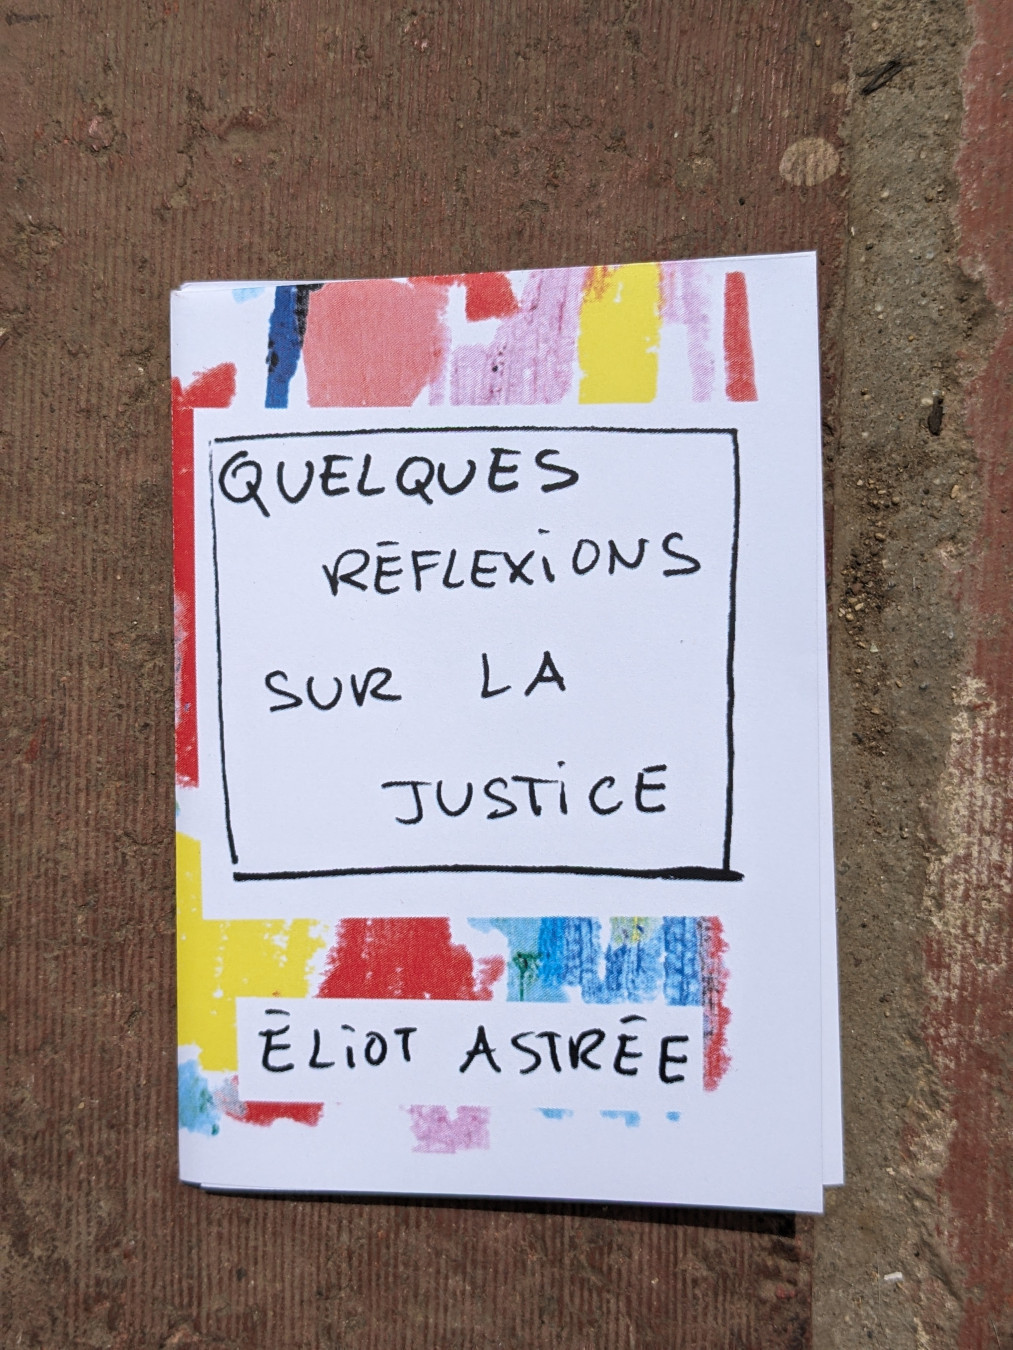 QUELQUES
RÉFLEXIONS
SUR LA
JUSTICE
ÉLIOT ASTRÉE